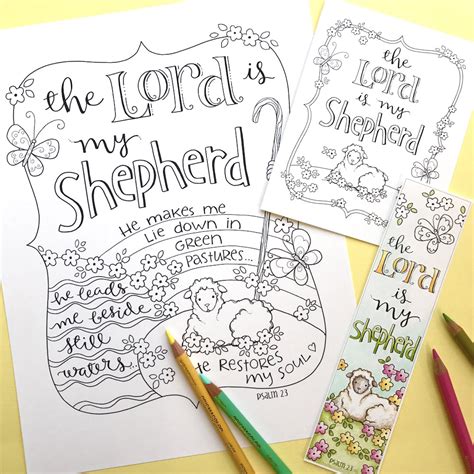 the Lord is
my
Shepherd
He makes me
Lie down in
Green
Pastures...
he leads
me beside
still
waters...
He restores
my soul
Psalm 23
the
Lord
is my
Shepherd
the
Lord
is
my
Shepherd
Psalm 23